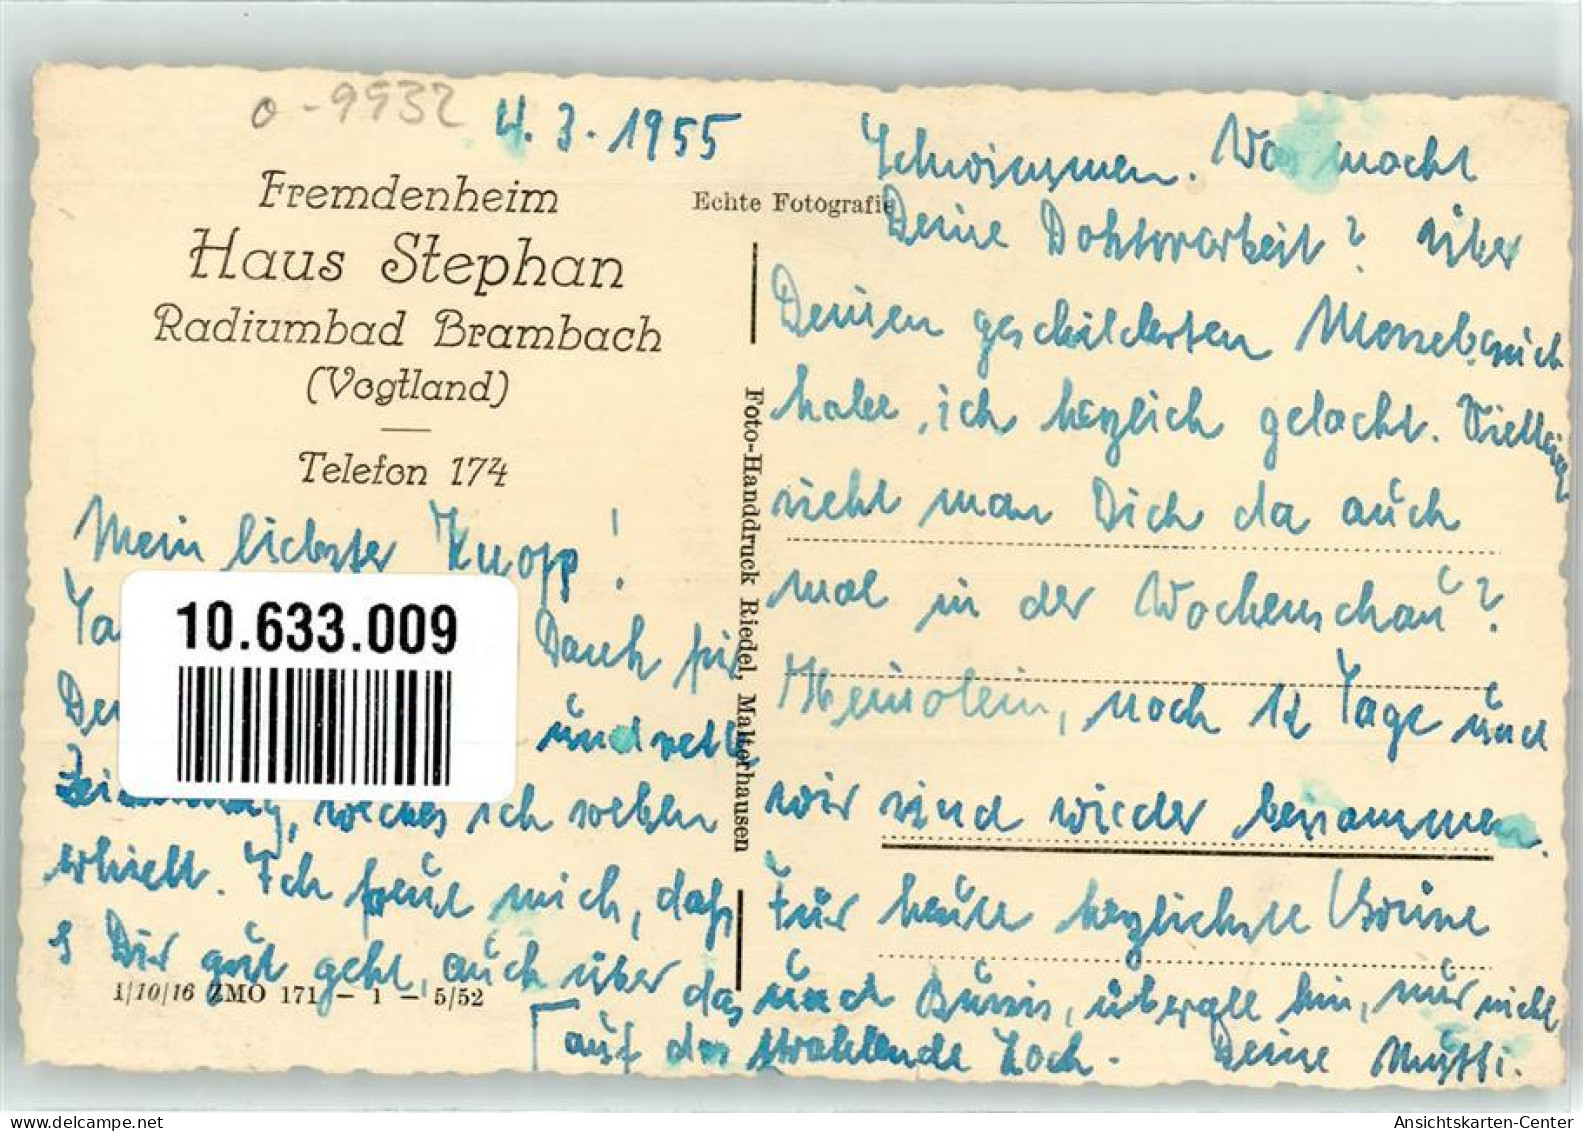 o-9932
4.3.1955
Fremdenheim
Haus Stephan
Radiumbad Brambach
(Vogtland)
Telefon 174
Mein liebster Knopp!
10.633.009
Dank für
und nette
welches ich soeben
erhielt. Ich freue mich, daß
s Dir gut geht, auch über das
1/10/16 ZMO 171 - 1 - 5/52
Echte Fotografie
Foto-Handdruck Riedel, Malterhausen
Schwimmen. Was macht
Deine Doktorarbeit? Über
Deinen geschilderten Messebesuch
habe ich herzlich gelacht. Vielleicht
sieht man Dich da auch
mal in der Wochenschau?
noch 12 Tage und
wir sind wieder beisammen.
Für heute herzlichste Grüße
und Bussis, überall hin, nur nicht
auf das strahlende Loch. Deine Mutti.
www.delcampe.net
Ansichtskarten-Center